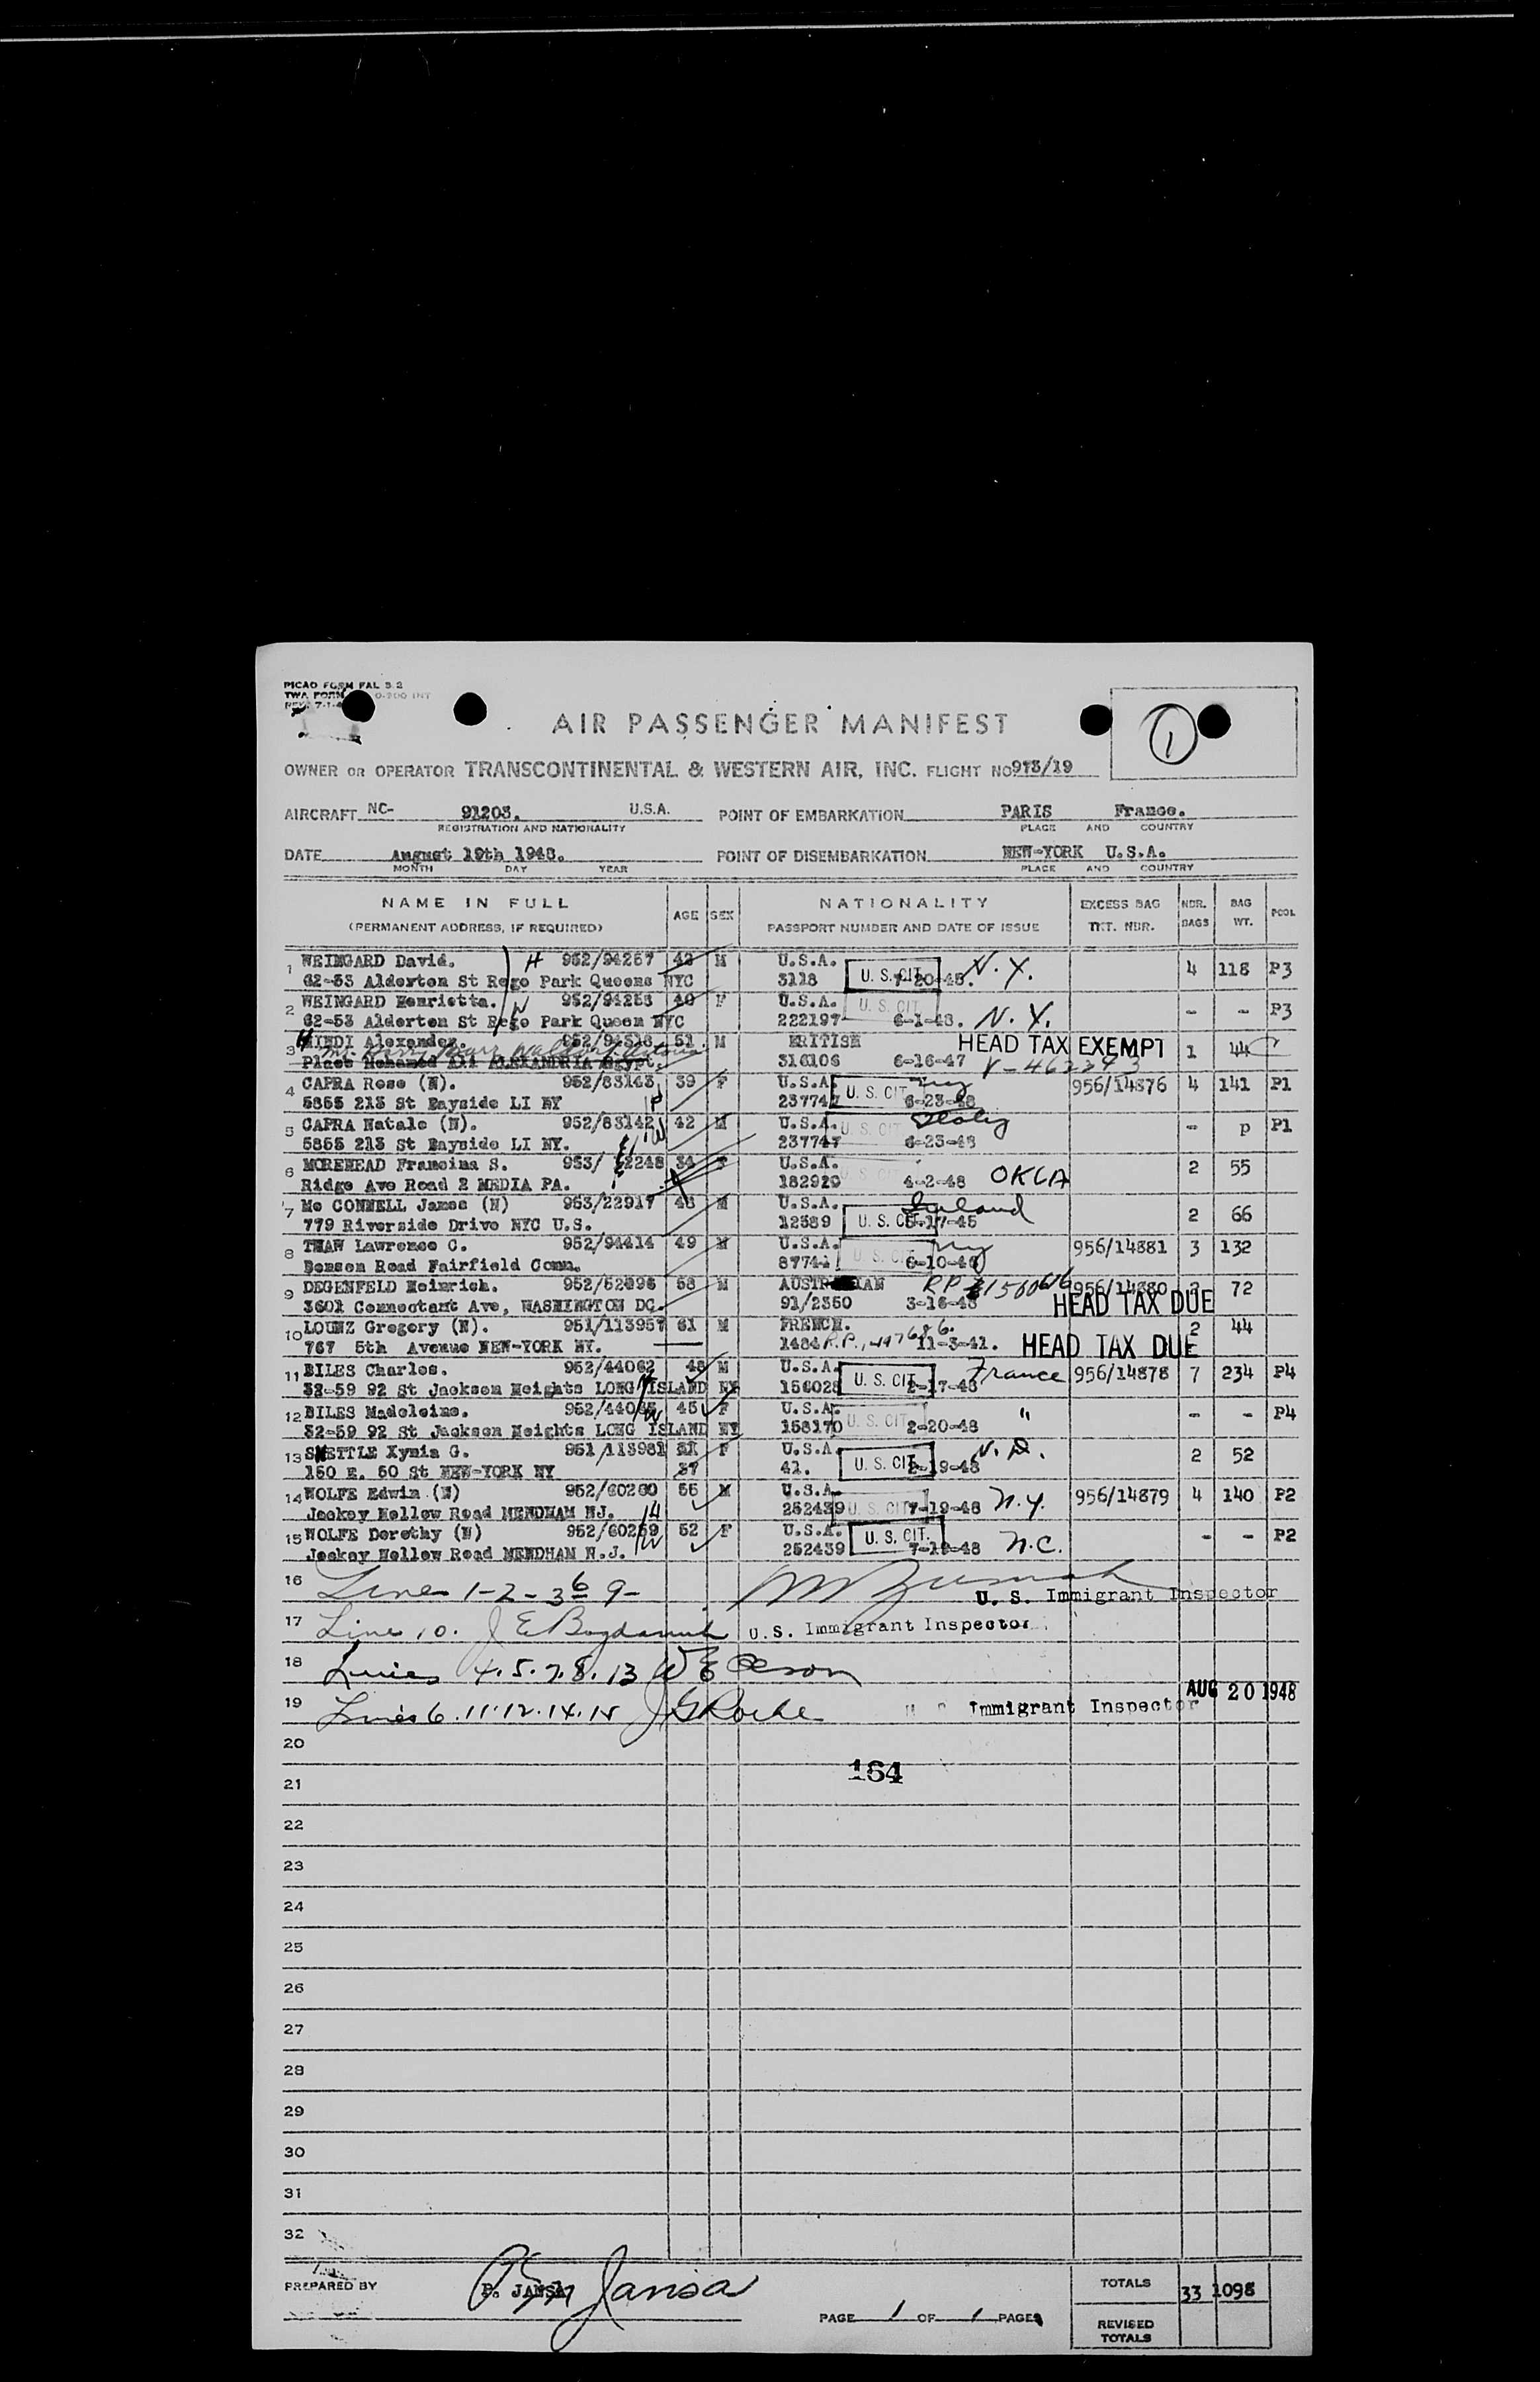 PICAO FORM FAL S 2
TWA FORM 0-200 INT
REV. 7-1-4
AIR PASSENGER MANIFEST
1
OWNER OR OPERATOR TRANSCONTINENTAL & WESTERN AIR, INC. FLIGHT NO 973/19
AIRCRAFT NC- 91203. U.S.A. POINT OF EMBARKATION PARIS France.
REGISTRATION AND NATIONALITY PLACE AND COUNTRY
DATE August 19th 1948. POINT OF DISEMBARKATION NEW-YORK U.S.A.
MONTH DAY YEAR PLACE AND COUNTRY
NAME IN FULL AGE SEX NATIONALITY EXCESS BAG NBR. BAG POOL
(PERMANENT ADDRESS, IF REQUIRED) PASSPORT NUMBER AND DATE OF ISSUE TKT. NBR. BAGS WT.
1 WEINGARD David. H 952/94257 42 M U.S.A. N.Y. 4 118 P3
62-53 Alderton St Rego Park Queens NYC 3118 U. S. CIT 7-20-45.
2 WEINGARD Henrietta. W 952/94258 40 F U.S.A. U. S. CIT - - P3
62-53 Alderton St Rego Park Queen NYC 222197 6-1-48. N.Y.
3 HINDI Alexander. 952/94318 51. M BRITISH HEAD TAX EXEMPT 1 44 C
Place Mohamed Ali ALEXANDRIA Egypt. 316106 6-16-47 V-462343
4 CAPRA Rose (N). 952/83143 39 F U.S.A. U. S. CIT NY 956/14876 4 141 P1
5855 213 St Bayside LI NY 237747 6-23-48
5 CAPRA Natale (N). 952/83142 42 M U.S.A. U. S. CIT Italy - P P1
5855 213 St Bayside LI NY. W 237747 6-23-48
6 MOREHEAD Francina S. 953/ 22248 34 F U.S.A. OKLA 2 55
Ridge Ave Road 2 MEDIA PA. 182920 U. S. CIT 4-2-48
7 Mc CONNELL James (N) 953/22917 48 M U.S.A. Ireland 2 66
779 Riverside Drive NYC U.S. 12589 U. S. CIT 5-17-45
8 THAW Lawrence C. 952/94414 49 M U.S.A. U. S. CIT NY 956/14881 3 132
Benson Road Fairfield Conn. 87744 6-10-46
9 DEGENFELD Heinrich. 952/52096 58 M AUSTRIAN R.P. 956/14880 72
3601 Connectant Ave, WASHINGTON DC. 91/2350 3-16-48 HEAD TAX DUE
10 LOUNZ Gregory (N). 951/113957 61 M FRENCH. 2 44
767 5th Avenue NEW-YORK NY. 1484 R.P., 497686. 11-3-41. HEAD TAX DUE
11 BILES Charles. 952/44062 48 M U.S.A. France 956/14878 7 234 P4
32-59 92 St Jackson Heights LONG ISLAND NY 156028 U. S. CIT 2-17-48
12 BILES Madeleine. 952/44063 45 F U.S.A. U. S. CIT " - - P4
32-59 92 St Jackson Heights LONG ISLAND NY 158170 2-20-48
13 SKETTLE Xynia G. 951/113981 F U.S.A. N.D. 2 52
150 E. 50 St NEW-YORK NY 37 41. U. S. CIT 2-19-48
14 WOLFE Edwin (N) 952/60260 55 M U.S.A. N.Y. 956/14879 4 140 P2
Jockey Hollow Road MENDHAM NJ. H 252439 U. S. CIT 7-19-48
15 WOLFE Dorothy (N) 952/60259 52 F U.S.A. U. S. CIT. N.C. - - P2
Jockey Hollow Road MENDHAM N.J. W 252439 7-19-48
16 Lines 1-2-3 6 9-
U. S. Immigrant Inspector
17 Line 10. J E Bogdanich U.S. Immigrant Inspector
18 Lines 4.5.7.8.13
19 Lines 6.11.12.14.15 J G Roche Immigrant Inspector AUG 20 1948
20
164
21
22
23
24
25
26
27
28
29
30
31
32
PREPARED BY P. JANSA Jansa TOTALS 33 1098
PAGE 1 OF 1 PAGES REVISED
TOTALS